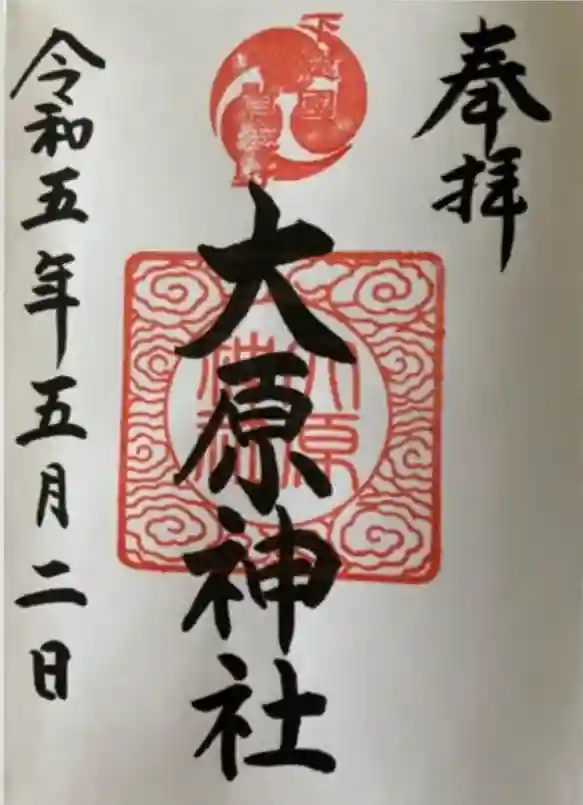 奉拝
大原神社
大原
神社
令和五年五月二日